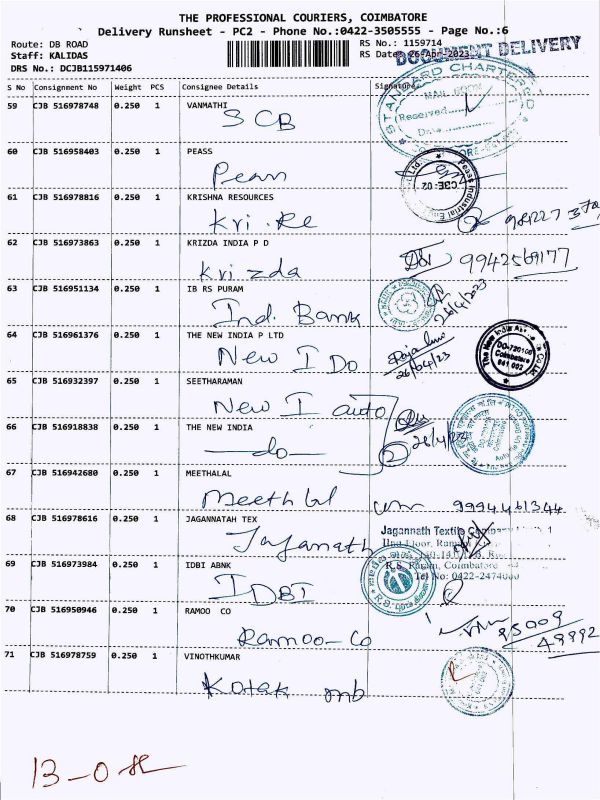 THE PROFESSIONAL COURIERS, COIMBATORE
Delivery Runsheet - PC2 - Phone No.:0422-3505555 - Page No.:6
Route: DB ROAD
RS No.: 1159714
DOCUMENT DELIVERY
Staff: KALIDAS
RS Date: 26-Apr-2023
DRS No.: DCJB115971406
S No Consignment No Weight PCS Consignee Details Signature
59 CJB 516978748 0.250 1 VANMATHI
SCB
STANDARD CHARTERED
MAIL ROOM
Received
Date
60 CJB 516958403 0.250 1 PEASS
Peass
Peass Industrial
CBE-02
61 CJB 516978816 0.250 1 KRISHNA RESOURCES
Kri.Re
62 CJB 516973863 0.250 1 KRIZDA INDIA P D
Krizda
9942569177
63 CJB 516951134 0.250 1 IB RS PURAM
Ind. Bank
26/4/2023
64 CJB 516961376 0.250 1 THE NEW INDIA P LTD
New I Do
26/04/23
The New India
DO-720100
Coimbatore
641 002
65 CJB 516932397 0.250 1 SEETHARAMAN
New I auto
66 CJB 516918838 0.250 1 THE NEW INDIA
-do-
2
26/4/23
67 CJB 516942680 0.250 1 MEETHALAL
Meethlal
9994461344
68 CJB 516978616 0.250 1 JAGANNATAH TEX
Jaganath
Jagannath Textile Company
IInd Floor,
R.S. Puram, Coimbatore
Tel No: 0422-2474000
69 CJB 516973984 0.250 1 IDBI ABNK
IDBI
70 CJB 516950946 0.250 1 RAMOO CO
Ramoo-Co
95009
48892
71 CJB 516978759 0.250 1 VINOTHKUMAR
Kotak mb